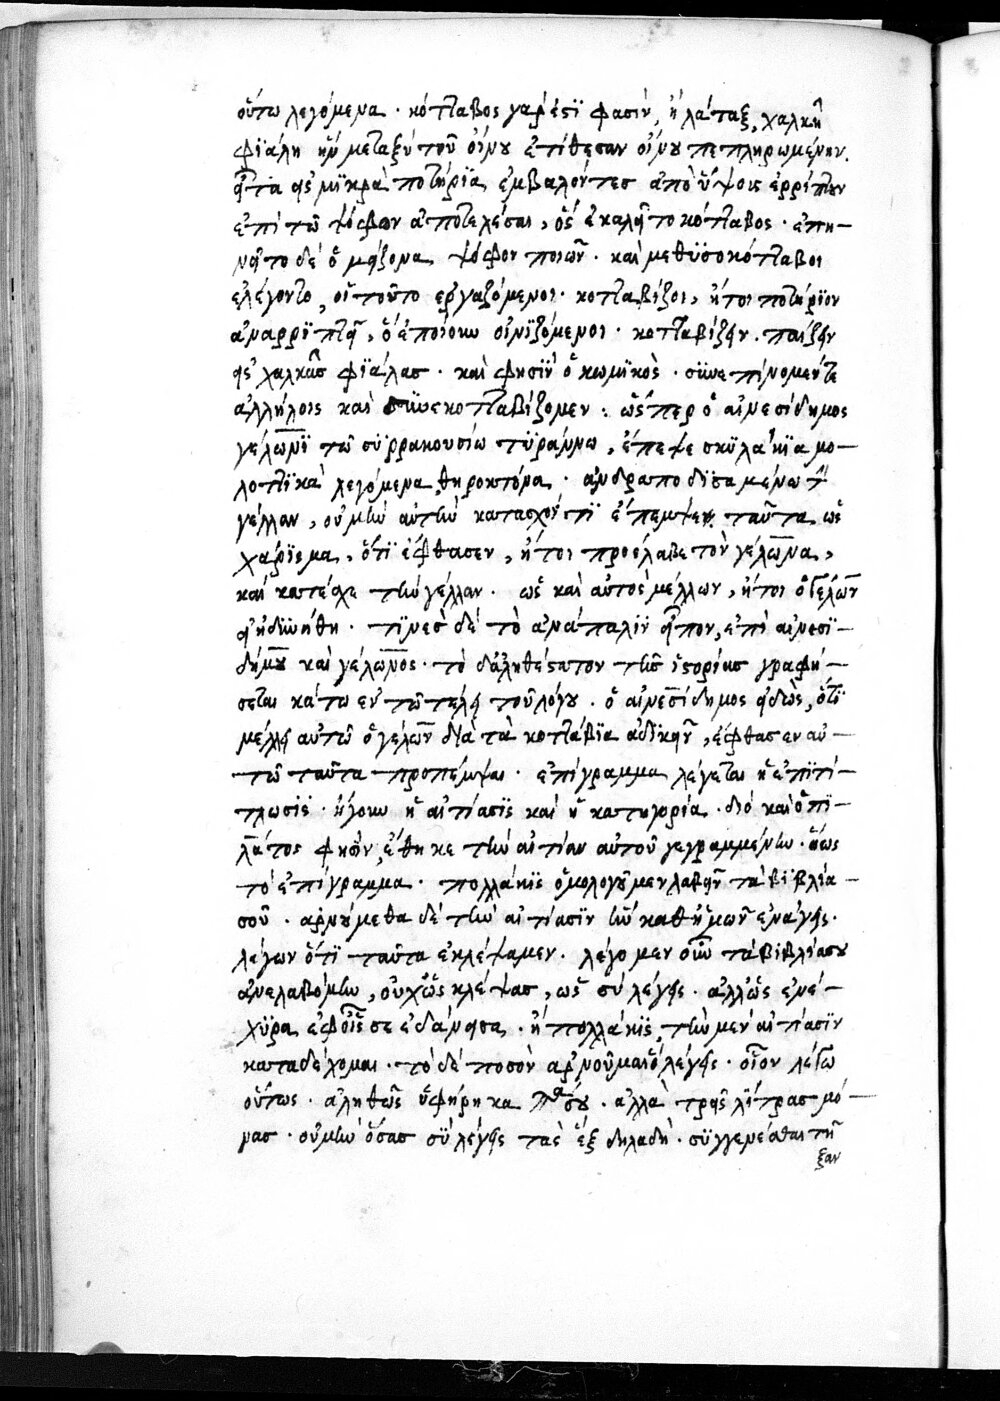 οὕτω λεγόμενα · κότταβος γάρ ἐστϊ φασὶν, ἡ λάταξ, χαλκῆ
φϊάλη ἣν μεταξὺ τοῦ οἴκου ἐτίθεσαν οἴνου πεπληρωμένην.
εἶτα εἰς μϊκρὰ ποτήρϊα ἐμβαλόντες ἀπὸ ὕψους ἐρρίπτουν
ἐπὶ τῶ ψόφον ἀποτελέσαι, ὃς ἐκαλεῖτο κότταβος · ἐπῃ-
νεῖτο δὲ ὁ μείζονα ψόφον ποιῶν · καὶ μεθϋσοκότταβοι
ἐλέγοντο, οἱ τοῦτο ἐργαζόμενοι · κοτταβίζει, ἤτοι ποτήρϊον
ἀναρρϊπτεῖ, ὃ ἐποίουν οἰνϊζόμενοι · κοτταβίζειν · παίζειν
εἰς χαλκᾶς φϊάλας · καὶ φησϊν ὁ κωμϊκὸς · σϋνεπίνομέν τε
ἀλλήλοις καὶ σϋνεκοτταβίζομεν : ὥσπερ ὁ αἰνεσίδημος
γέλωνϊ τῶ συρρακουσίω τϋράννω, ἔπεμψε σκϋλάκϊα μο-
λοττϊκὰ λεγόμενα θηροκτόνα · ἀνδραποδϊσαμένω τὴν
γέλλαν, οὐ μὴν αὐτὴν κατασχόντϊ ἔπεμψεν ταῦτα ὡς
χάρϊσμα, ὅτϊ ἔφθασεν, ἤτοι προέλαβε τὸν γέλωνα,
καὶ κατέσχε τὴν γέλλαν · ὡς καὶ αὐτὸς μέλλων, ἤτοι ὁ γέλων
ἠνδυνήθη · τϊνὲς δὲ τὸ ἀνάπαλϊν εἶπον, ἐπὶ αἰνεσϊ-
δήμου καὶ γέλωνος · τὸ δ' ἀληθέστατον τῆς ἱστορίας γραφή-
σεται κάτω ἐν τῶ τέλει τοῦ λόγου · ὁ αἰνεσίδημος εἰδὼς, ὅτϊ
μέλλει αὐτῶ ὁ γέλων διὰ τὰ κοττάβϊα ἀδϊκεῖν, ἔφθασεν αὐ-
τῶ ταῦτα προπέμψαι · ἐπίγραμμα λέγεται ἡ ἐπϊτί-
τλωσϊς · ἤγουν ἡ αἰτίασϊς καὶ ἡ κατηγορία · διὸ καὶ ὁ πϊ-
λάτος φησὶν, ἔθηκε τὴν αἰτίαν αὐτοῦ γεγραμμένην · ἤως
τὸ ἐπίγραμμα · πολλάκϊς ὁμολογοῦμεν λαβεῖν τὰ βϊβλία
σοῦ · ἀρνούμεθα δὲ τὴν αἰτίασϊν ἣν καθ' ἡμῶν ἐνάγεις ·
λέγων ὅτϊ ταῦτα ἐκλέψαμεν · λέγομεν οὖν τὰ βϊβλία σου
ἀνελαβόμην, οὐχ ὡς κλέψας, ὡς σὺ λέγεις · ἀλλ' ὡς ἐνέ-
χϋρα ἐφ' οἷς σε ἐδάνεισα · ἢ πολλάκϊς τὴν μὲν αἰτίασϊν
καταδέχομαι · τὸ δὲ ποσὸν ἀρνοῦμαι ὃ λέγεις · οἷον λέγω
οὕτως · ἀληθῶς ὑφήρηκα σου · ἀλλὰ τρεῖς λϊτρας μό-
νας · οὐ μὴν ὅσας σϋ λέγεις τὰς ἓξ δηλαδὴ · σϋγγενέσθαι τῆ
ξαν